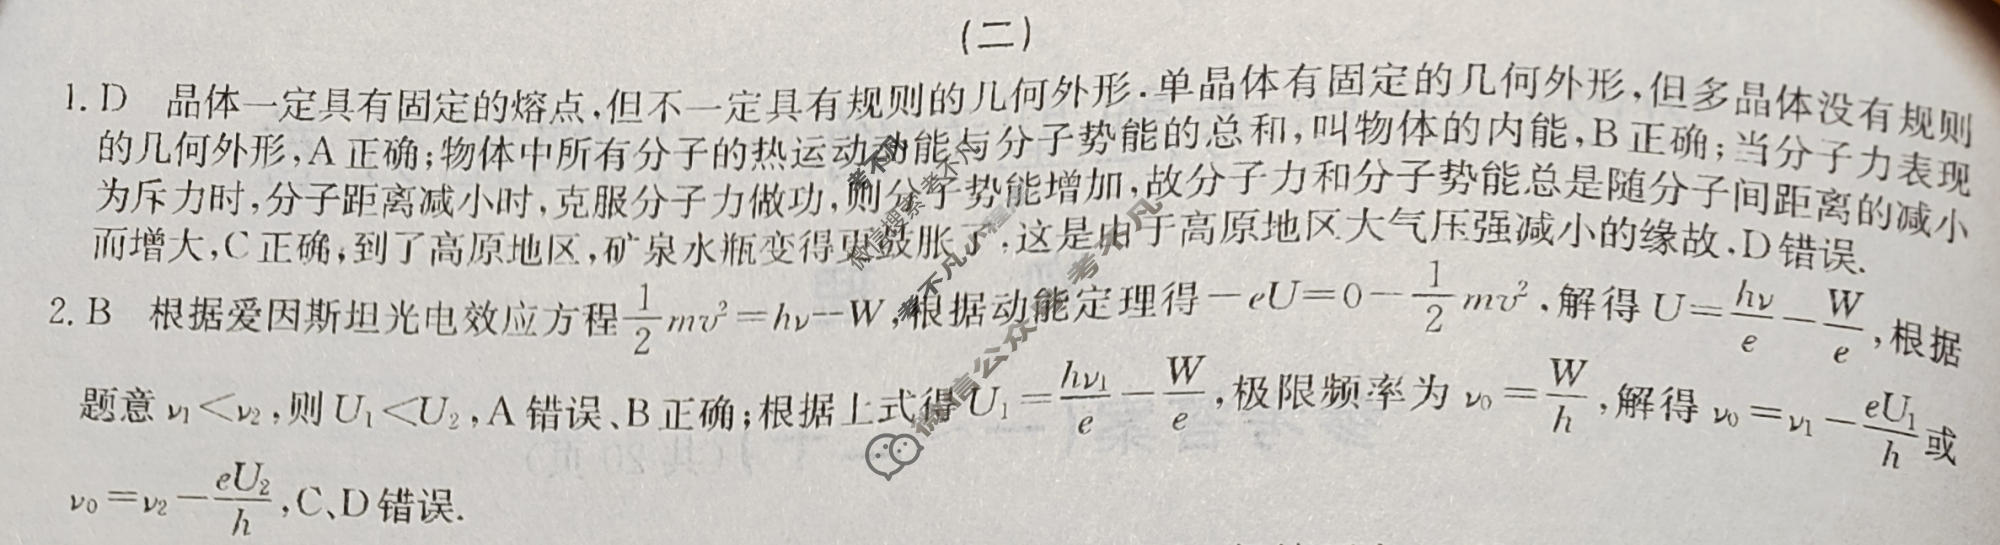 (二)
1. D 晶体一定具有固定的熔点,但不一定具有规则的几何外形.单晶体有固定的几何外形,但多晶体没有规则
的几何外形,A正确;物体中所有分子的热运动动能与分子势能的总和,叫物体的内能,B正确;当分子力表现
为斥力时,分子距离减小时,克服分子力做功,则分子势能增加,故分子力和分子势能总是随分子间距离的减小
而增大,C正确,到了高原地区,矿泉水瓶变得更鼓胀了,这是由于高原地区大气压强减小的缘故,D错误.
2. B 根据爱因斯坦光电效应方程 1/2 mv²=hν−W,根据动能定理得−eU=0−1/2 mv²,解得U=hν/e−W/e,根据
题意ν₁<ν₂,则U₁<U₂,A错误、B正确;根据上式得U₁=hν₁/e−W/e,极限频率为ν₀=W/h,解得ν₀=ν₁−eU₁/h或
ν₀=ν₂−eU₂/h,C、D错误.